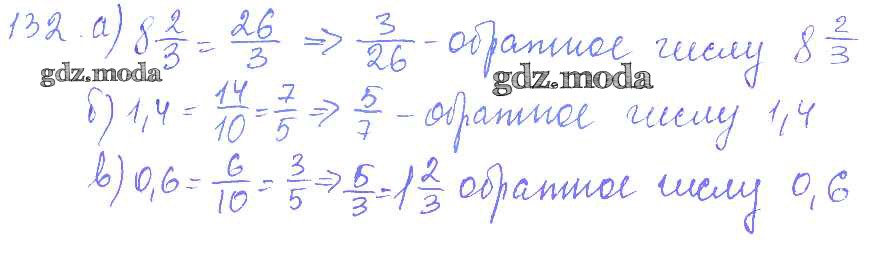 132. а) 8 2/3 = 26/3 ⇒ 3/26 - обратное числу 8 2/3
gdz.moda gdz.moda
б) 1,4 = 14/10 = 7/5 ⇒ 5/7 - обратное числу 1,4
в) 0,6 = 6/10 = 3/5 ⇒ 5/3 = 1 2/3 обратное числу 0,6